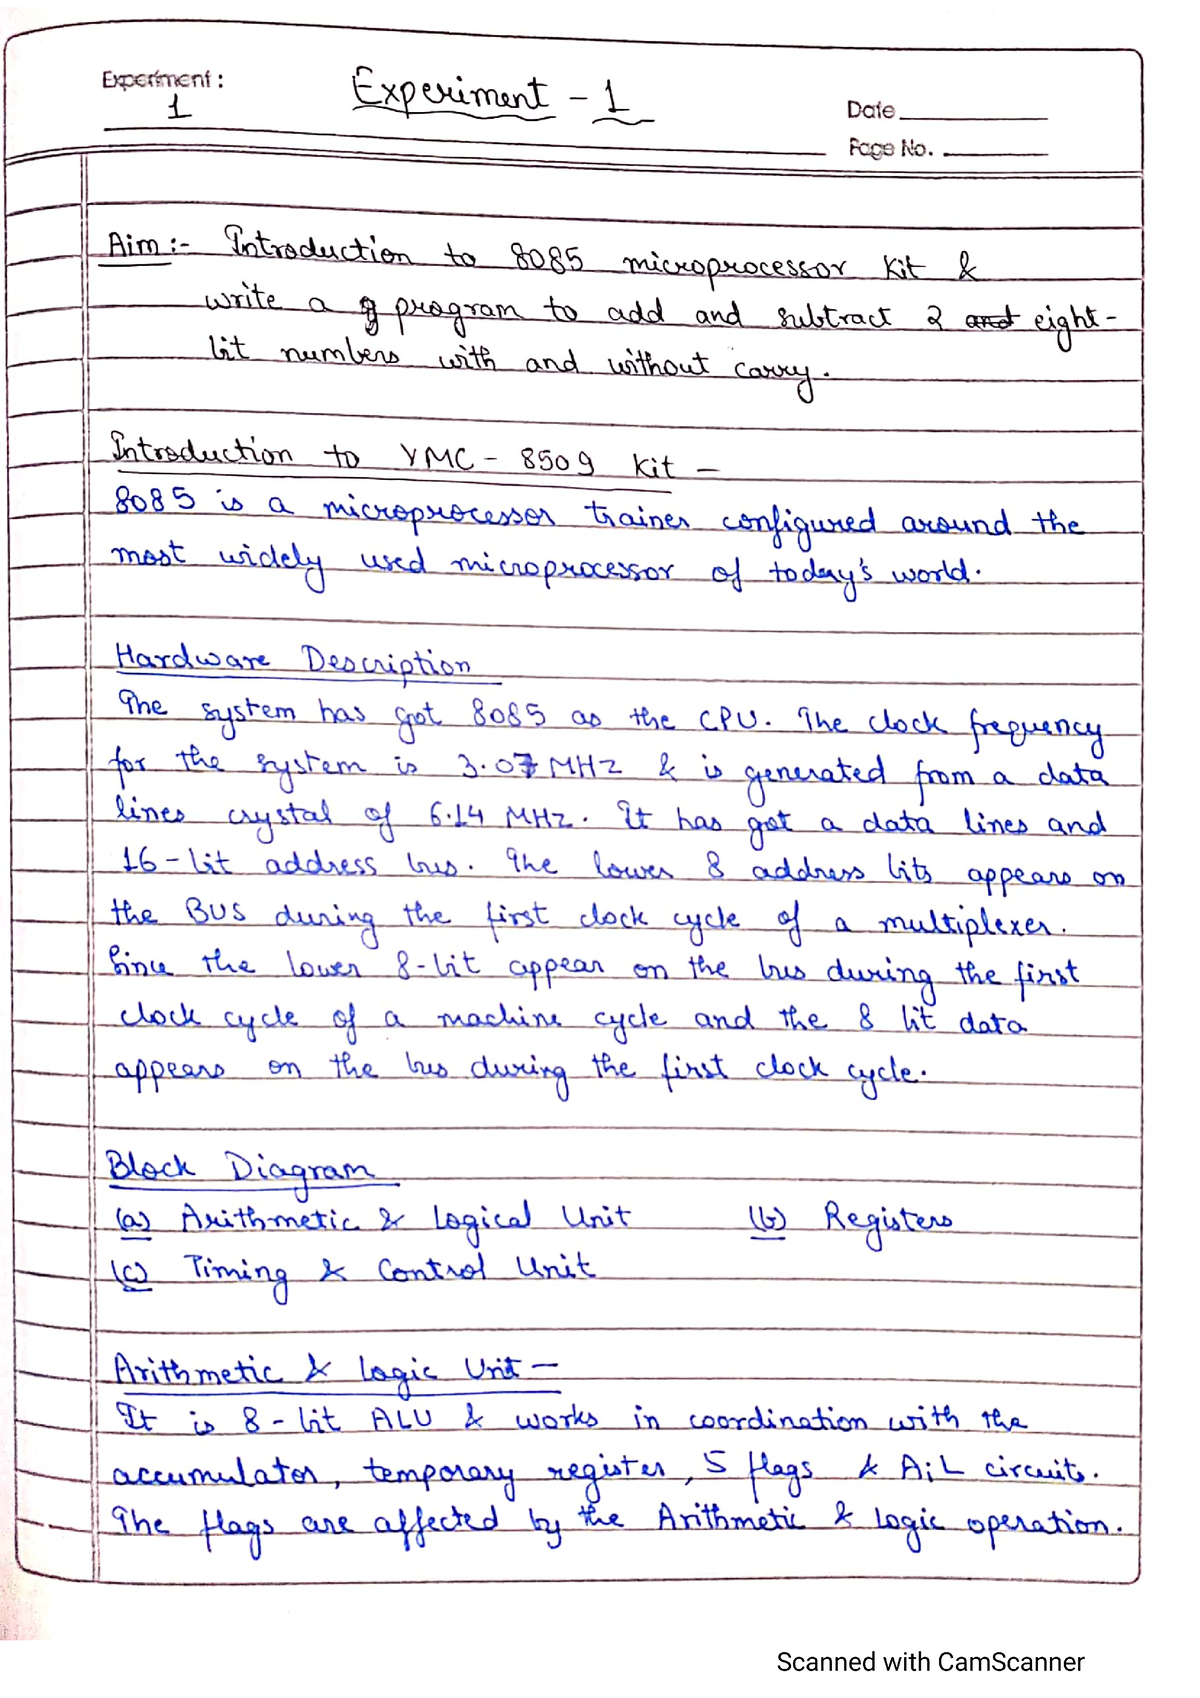 Experiment :
1
Experiment - 1
Date
Page No.
Aim :- Introduction to 8085 microprocessor Kit &
write a program to add and subtract 2 and eight-
bit numbers with and without carry.
Introduction to VMC - 8509 Kit -
8085 is a microprocessor trainer configured around the
most widely used microprocessor of today's world.
Hardware Description
The system has got 8085 as the CPU. The clock frequency
for the system is 3.07 MHz & is generated from a data
lines crystal of 6.14 MHz. It has got a data lines and
16-bit address bus. The lower 8 address bits appears on
the BUS during the first clock cycle of a multiplexer.
Since the lower 8-bit appear on the bus during the first
clock cycle of a machine cycle and the 8 bit data
appears on the bus during the first clock cycle.
Block Diagram
(a) Arithmetic & Logical Unit (b) Registers
(c) Timing & Control Unit
Arithmetic & Logic Unit -
It is 8-bit ALU & works in coordination with the
accumulator, temporary register, 5 flags & A;L circuits.
The flags are affected by the Arithmetic & Logic operation.
Scanned with CamScanner